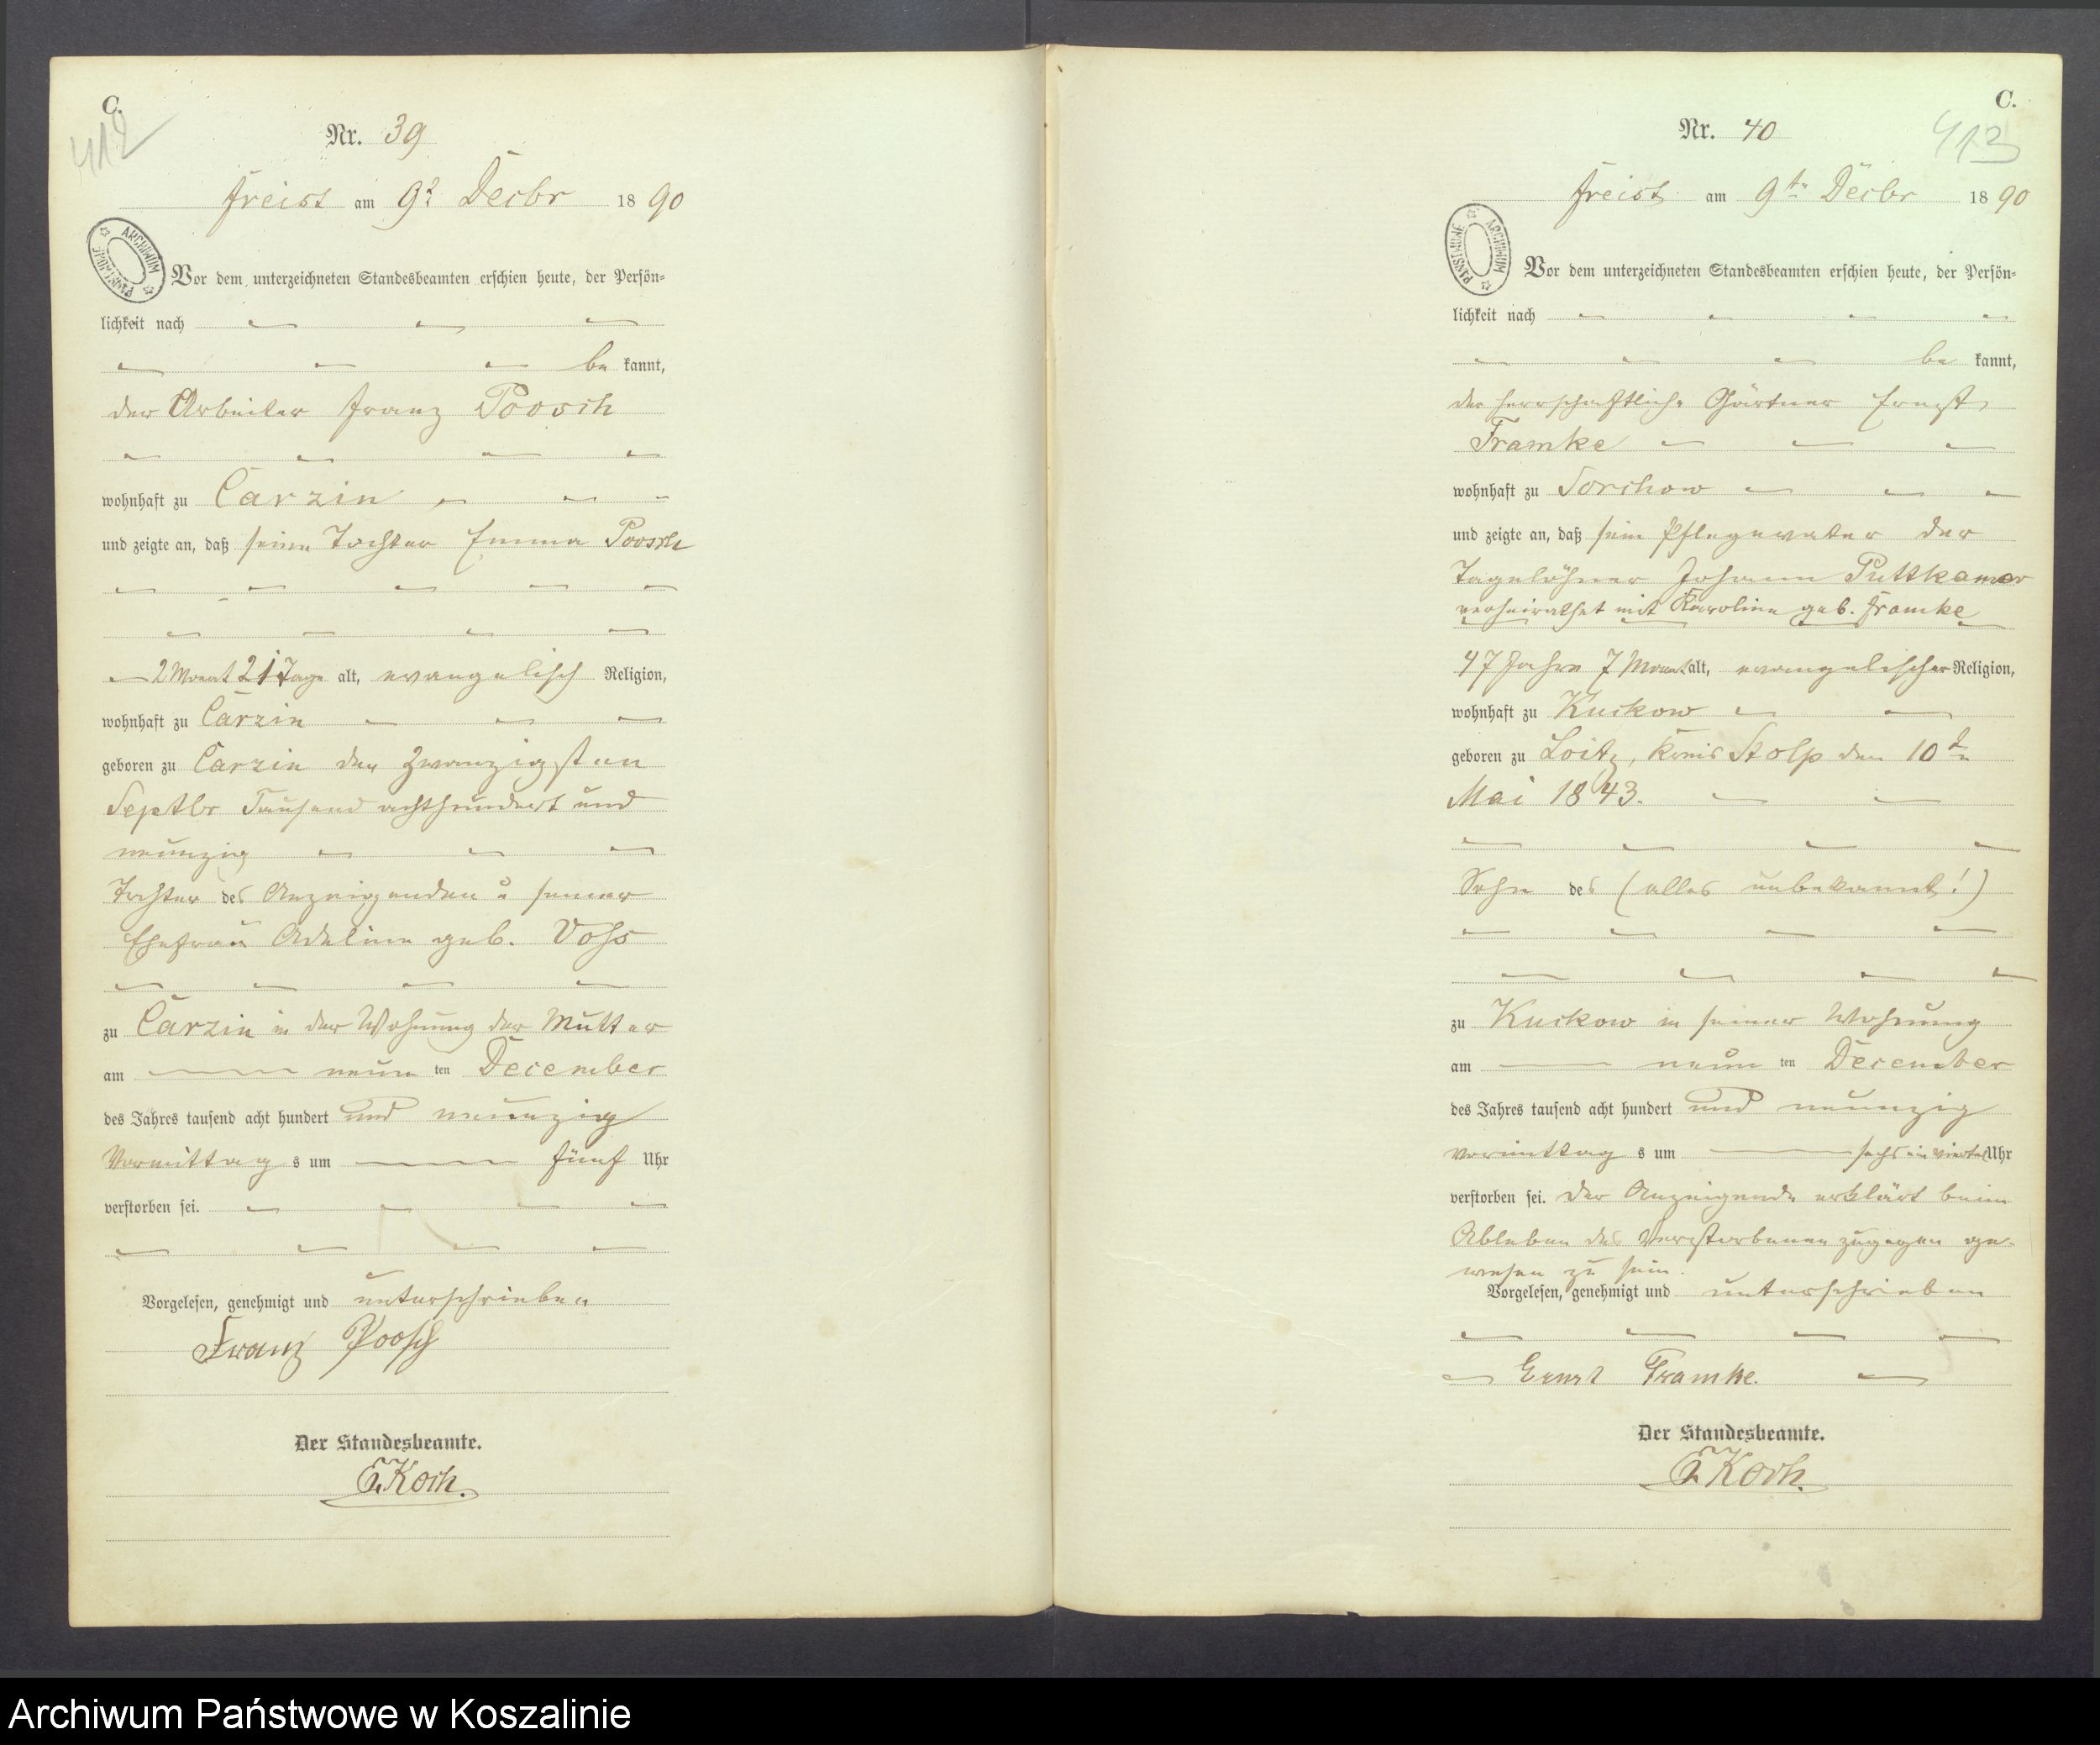 C.
412
Nr. 39
Freist am 9t Decbr 1890
ARCHIWUM PAŃSTWOWE
Vor dem unterzeichneten Standesbeamten erschien heute, der Persön-
lichkeit nach
be kannt,
der Arbeiter Franz Poosch
wohnhaft zu Carzin
und zeigte an, daß seine Tochter Emma Poosch
2 Monat 21 Tage alt, evangelisch Religion,
wohnhaft zu Carzin
geboren zu Carzin den zwanzigsten
Septbr Tausend achthundert und
neunzig
Tochter des Anzeigenden u seiner
Ehefrau Adeline geb. Voss
zu Carzin in der Wohnung der Mutter
am neun ten December
des Jahres tausend acht hundert und neunzig
Vormittag s um fünf Uhr
verstorben sei.
Vorgelesen, genehmigt und unterschrieben
Franz Poosch
Der Standesbeamte.
Koch.
C.
413
Nr. 40
Freist am 9ten Decbr 1890
ARCHIWUM PAŃSTWOWE
Vor dem unterzeichneten Standesbeamten erschien heute, der Persön-
lichkeit nach
be kannt,
der herrschaftliche Gärtner Ernst
Framke
wohnhaft zu Sorchow
und zeigte an, daß sein Pflegevater der
Tagelöhner Johann Puttkamer
verheirathet mit Karoline geb. Framke
47 Jahre 7 Monat alt, evangelischer Religion,
wohnhaft zu Kuckow
geboren zu Loitz, Kreis Stolp den 10ten
Mai 1843.
Sohn des (alles unbekannt!)
zu Kuckow in seiner Wohnung
am neun ten December
des Jahres tausend acht hundert und neunzig
vormittag s um sechs ein viertel Uhr
verstorben sei. Der Anzeigende erklärt beim
Ableben des Verstorbenen zugegen ge-
wesen zu sein.
Vorgelesen, genehmigt und unterschrieben
Ernst Framke.
Der Standesbeamte.
Koch.
Archiwum Państwowe w Koszalinie